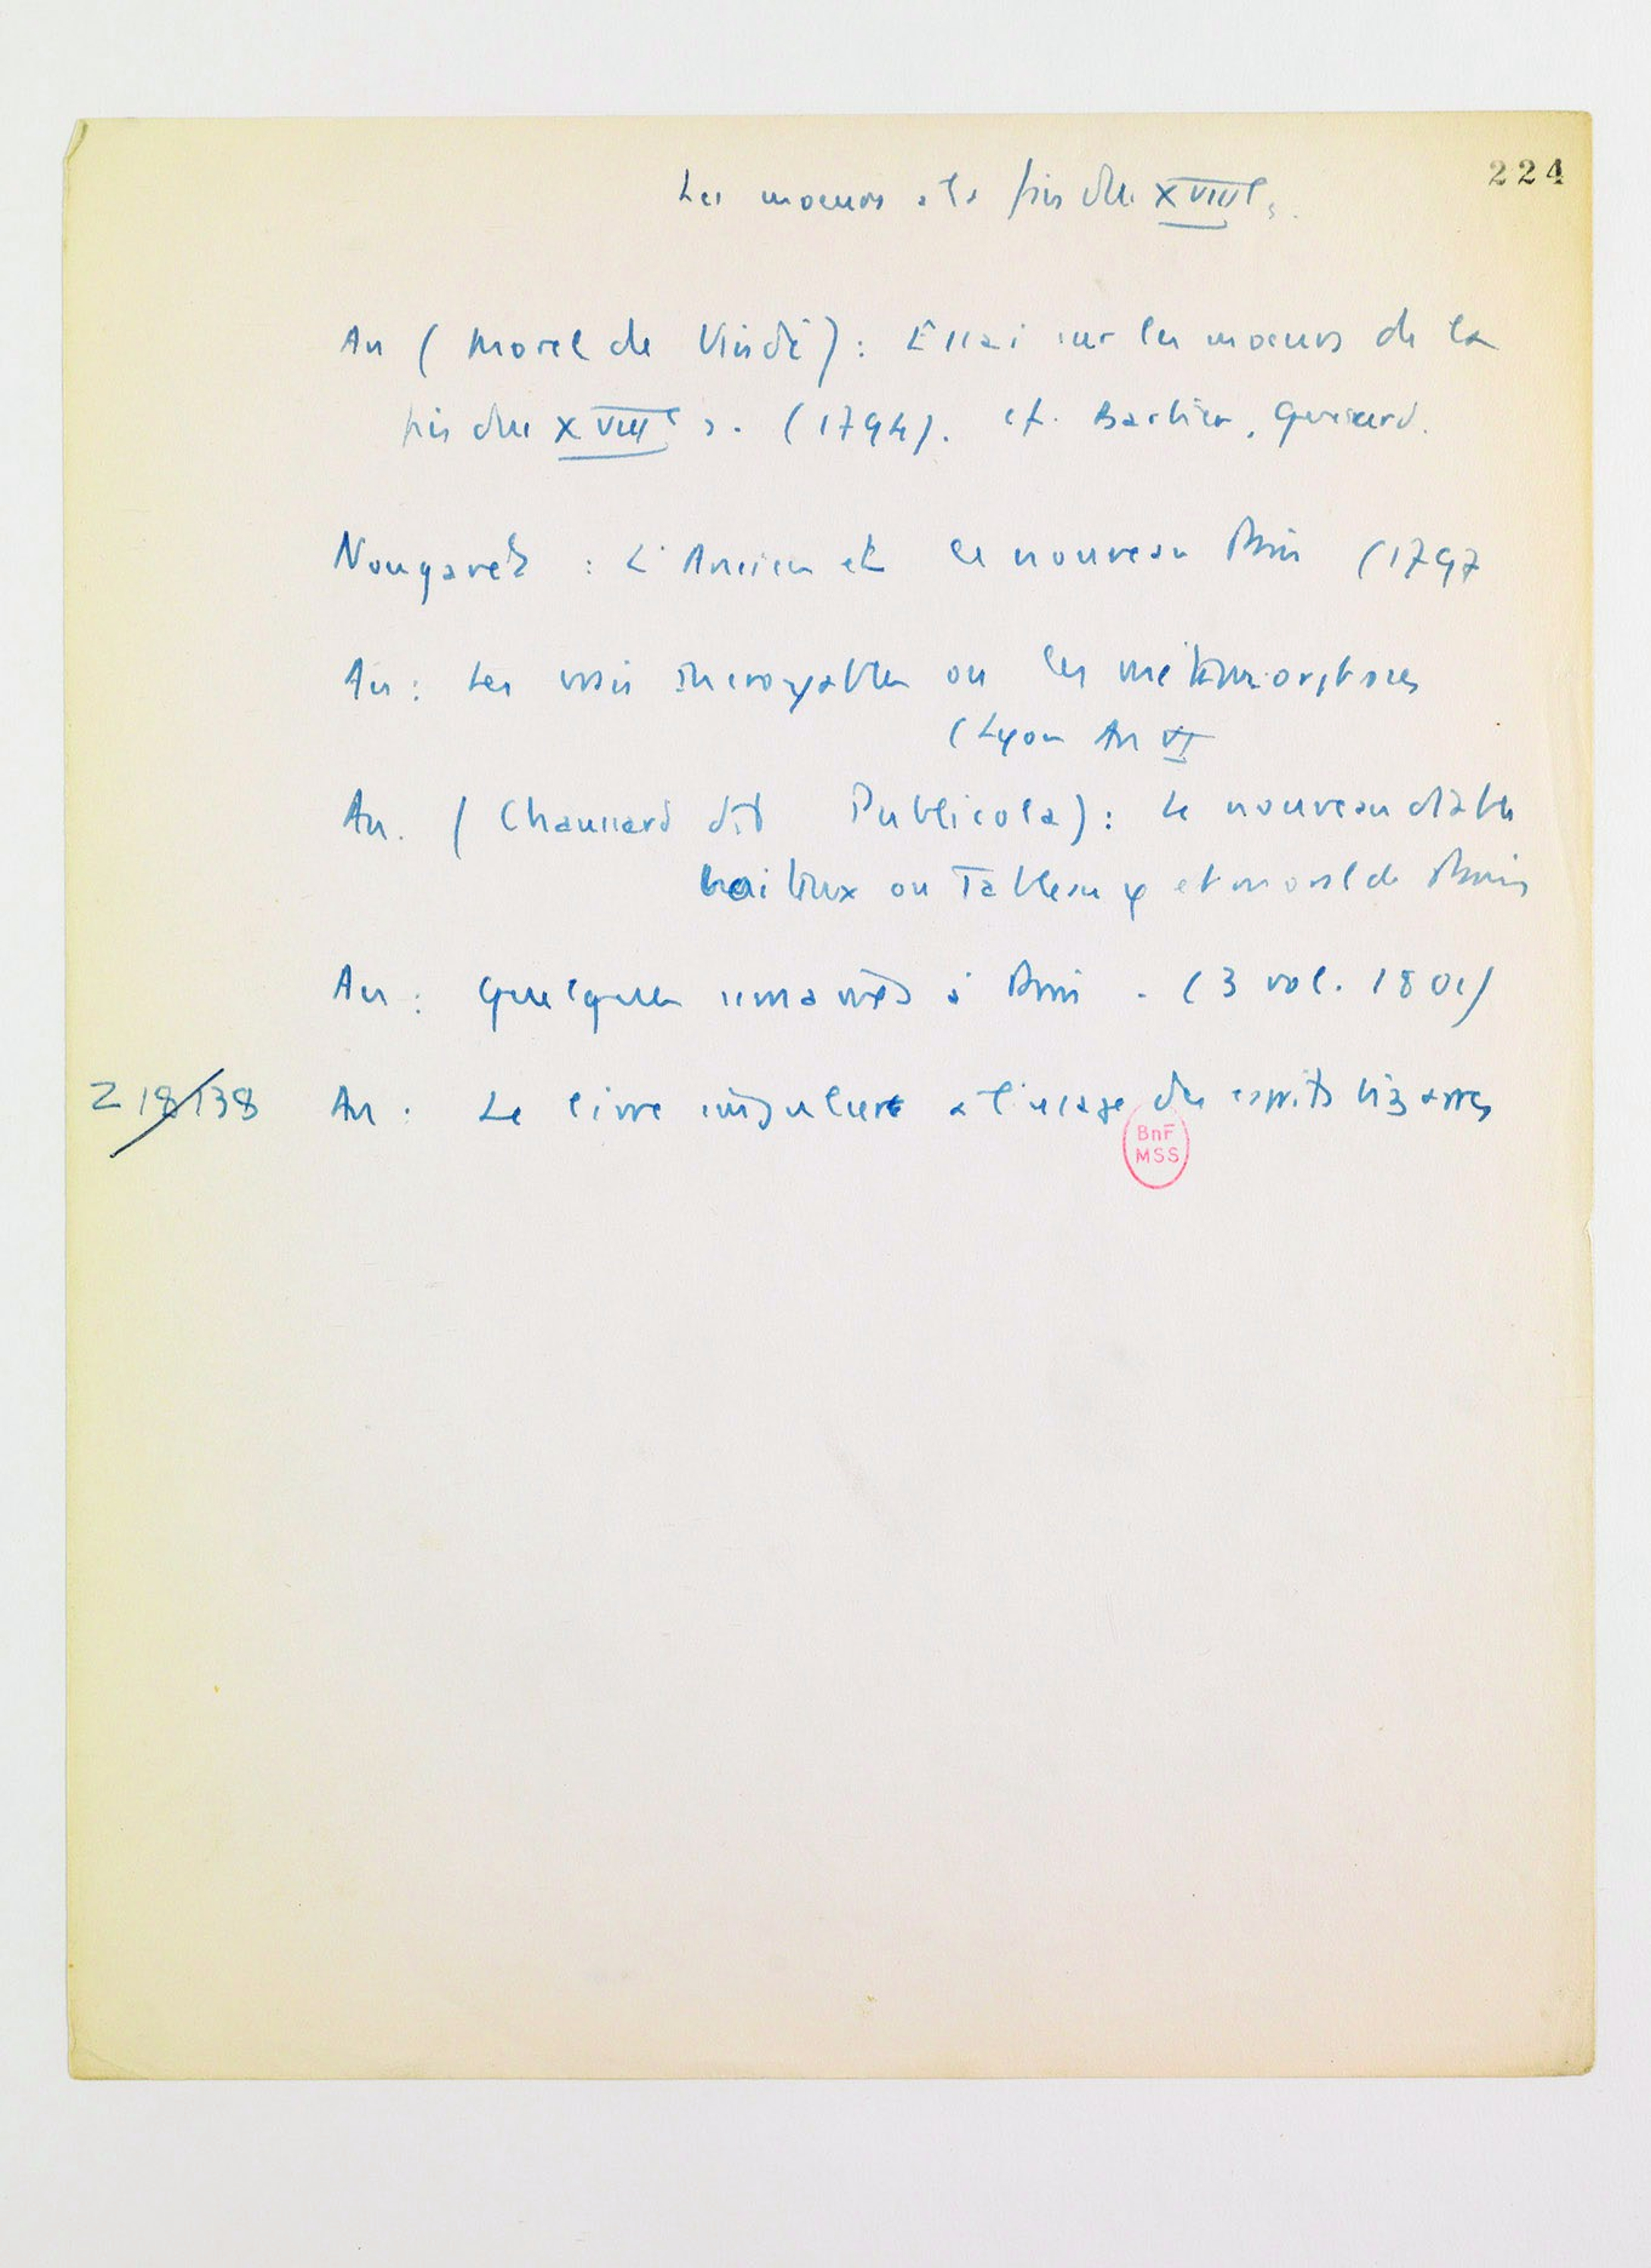 224
Les moeurs à la fin du XVIIIe s.
An (Morel de Vindé) : Essai sur les moeurs de la
fin du XVIIIe s. (1794). cf. Barbier, Querard.
Nougaret : L'Ancien et le nouveau Paris (1797
An : Les vrais incroyables ou les métamorphoses
(Lyon An VI
An. (Chaussard dit Publicola) : Le nouveau diable
boiteux ou Tableau φ et moral de Paris
An : Quelques semaines à Paris. (3 vol. 1801)
Z 18138 An : Le livre singulier à l'usage des esprits bizarres
BnF
MSS